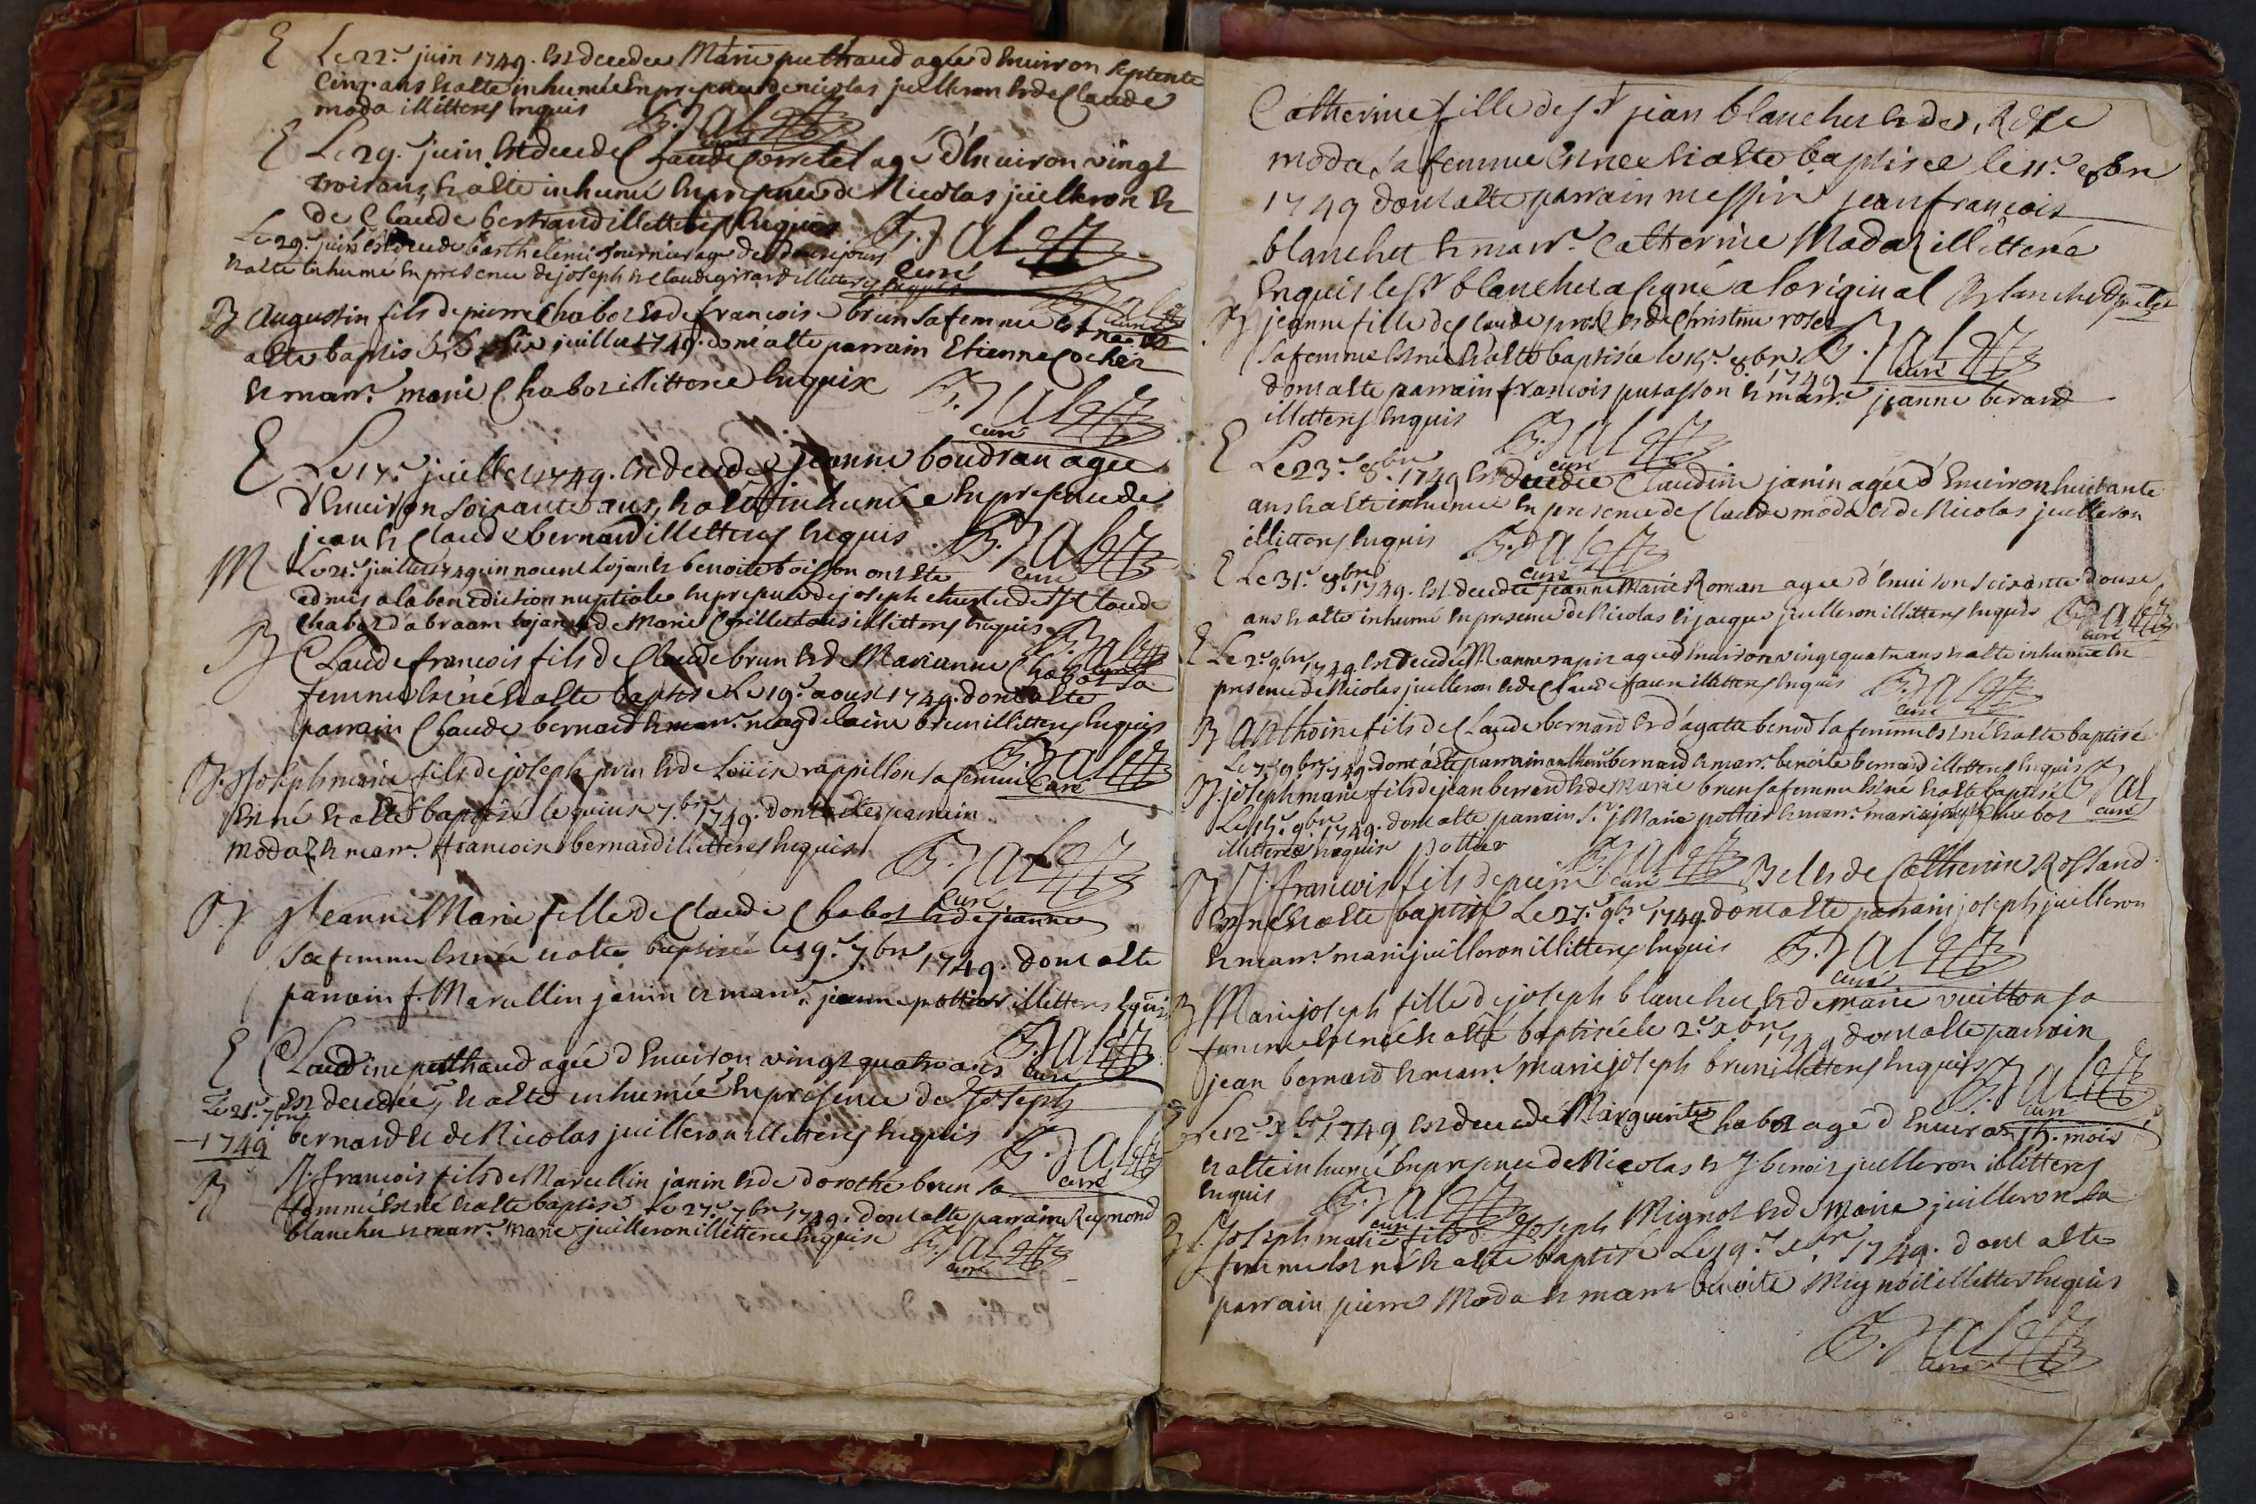 E Le 22.e juin 1749. est decedee Marie puthaud agée d'Environ septente
Cinq ans et a ete inhumée En presence de nicolas juilleron et de Claude
moda illitteres Enquis
B. Jal
curé
E Le 29. juin est decedé Claude agé d'Environ vingt
trois ans, et a ete inhumé En presence de Nicolas juilleron et
de Claude bertrand illitteres Enquis
B. Jal
curé
Le 29.e juin est decedé barthelemi fournier agé de douse jours
et a ete inhumé En presence de joseph et Claude girard illitteres Enquis
B. Jal
curé
B Augustin fils de pierre Chabot et de francoise brun sa femme est né et
a ete baptisé le juillet 1749. dont a ete parrain Etienne Cocher
et marr.e marie Chabot illitteré Enquix
B. Jal
curé
E Le 17.e juillet 1749. est decedée jeanne boudran agée
d'Environ soixante ans, et a ete inhumée En presence de
jean et Claude bernard illitteres Enquis
B. Jal
curé
M Le 21.e juillet 1749 innocent Lojan et benoite boisson ont ete
admis a la benediction nuptiale En presence de joseph de Claude
Chabot d'abraam lojan et de Marie illitteres Enquis
B. Jal
curé
B Claude francois fils de Claude brun et de Marianne Chabot sa
femme est né et a ete baptisé Le 19.e aoust 1749. dont a ete
parrain Claude bernard et marr.e magdelaine brun illitteres Enquis
B. Jal
curé
B. Joseph marie fils de joseph prin et de Loüise rappillon sa femme
est né et a ete baptisé le 7.bre 1749. dont a ete parrain
Modaz et marr.e francoise bernard illitteres Enquis
B. Jal
curé
B. Jeanne Marie fille de Claude Chabot et de jeanne
sa femme est née et a ete baptisée le 9.e 7.bre 1749. dont a ete
parrain f. Marcellin janin et marr.e jeanne pottier illitteres Enquis
B. Jal
curé
E Claudine puthaud agée d'Environ vingt quatre ans
Le 21.e 7.bre est decedée, et a ete inhumée En présence de Joseph
1749 bernard et de Nicolas juilleron illitteres Enquis
B. Jal
curé
B J. francois fils de Marcellin janin et de dorothé brun sa
femme est né et a ete baptisé Le 27.e 7.bre 1749. dont a ete parrain Reymond
blanchet et marr.e Marie juilleron illitteré Enquise
B. Jal
curé
Catherine fille de s.r jean blanchet et de Rose
moda sa femme est née et a ete baptisée le 11.e 8bre
1749 dont a ete parrain messire jean françois
blanchet et marr.e Catherine Modaz illitterée
Enquis le s.r blanchet a signé a loriginal Blanchet
B. Jal
curé
B jeanne fille de Claude prost et de Christine roset
sa femme est née et a ete baptisée le 15.e 8.bre 1749
dont a ete parrain francois putasson et marr.e jeanne bérard
illitteres Enquis
B. Jal
curé
E Le 23.e 8.bre 1749 est decedée Claudine janin agée d'Environ huictante
ans et a ete inhumée En presence de Claude moda et de Nicolas juilleron
illitteres Enquis
B. Jal
curé
E Le 31.e 8.bre 1749. est decedée jeanne Marie Roman agée d'Environ soixante douze
ans et a ete inhumé En presence de Nicolas et jacque juilleron illitteres Enquis
B. Jal
curé
E Le 2.e 9.bre 1749. est decedée M.anne rapit agée d'Environ vingt quatre ans et a ete inhumée En
presence de Nicolas juilleron et de Claude faure illitteres Enquis
B. Jal
curé
B Anthoine fils de Claude bernard et d'agatte benod sa femme est né et a ete baptisé
Le 7.e 9.bre 1749. dont a ete parrain anthoine bernard et marr.e benoite bernard illitteres Enquis
B. Jal
curé
B. joseph marie fils de jean berrard et de Marie brun sa femme est né et a ete baptisé
Le 15.e 9.bre 1749. dont a ete parrain S.r j Marie pottier et marr.e marie joseph Chabot
illitteree Enquise pottier
B. Jal
curé
B J. francois fils de pierre Bel et de Catherine Rostand
est né et a ete baptisé Le 27.e 9.bre 1749. dont a ete parrain joseph juilleron
et marr.e marie juilleron illitteres Enquis
B. Jal
curé
B Marie joseph fille de joseph blanchet et de marie vuitton sa
femme est née et a ete baptisée le 2.e xbre 1749 dont a ete parrain
jean bernard et marr.e marie joseph brun illitteres Enquis
B. Jal
curé
Le 12.e xbre 1749 est decedé Marguerite Chabot agé d'Environ 15. mois
et a ete inhumé En presence de Nicolas et J. benoit juilleron illitteres
Enquis
B. Jal
curé
B. Joseph marie fils de Joseph Mignot et de Marie juilleron sa
femme est né et a ete baptisé Le 19.e xbre 1749. dont a ete
parrain pierre Moda et marr.e benoite Mignot illitteres Enquis
B. Jal
curé